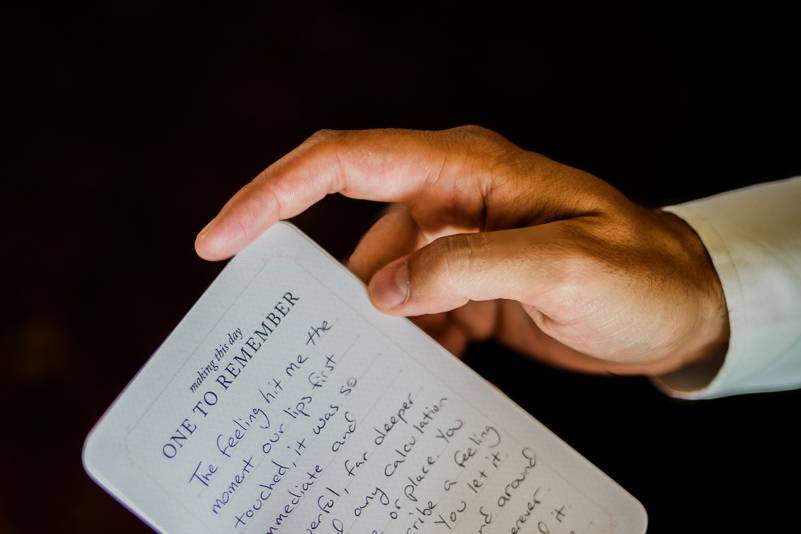 making this day
ONE TO REMEMBER
The feeling hit me the
moment our lips first
touched, it was so
mmediate and
erful, far deeper
d any calculation
e or place. You
cribe a feeling
You let it
nd around
erever
d it